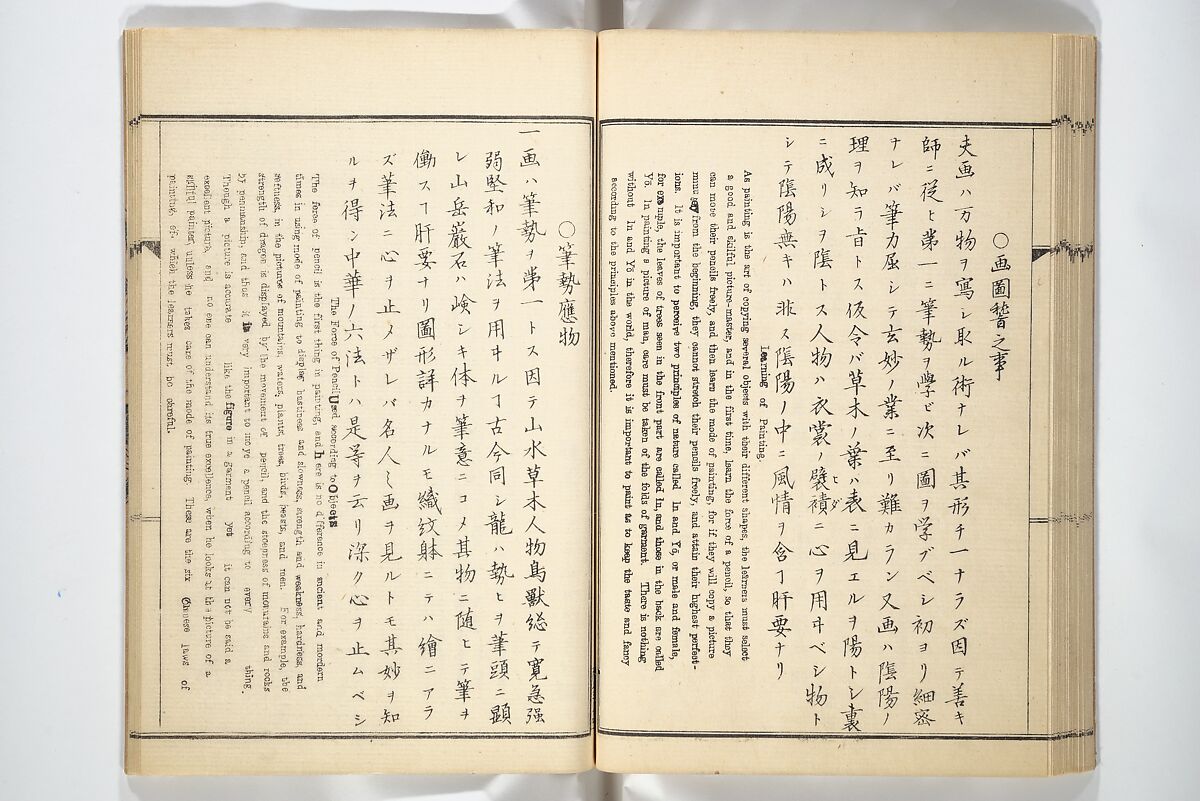 ○画圖稽之事
夫画ハ万物ヲ寫シ取ル術ナレバ其形チ一ナラズ因テ善キ
師ニ從ヒ第一ニ筆勢ヲ學ビ次ニ圖ヲ学ブベシ初ヨリ細密
ナレバ筆力屈シテ玄妙ノ業ニ至リ難カラン又画ハ陰陽ノ
理ヲ知ラ旨トス仮令バ草木ノ葉ハ表ニ見エルヲ陽トシ裏
ニ成リシヲ陰トス人物ハ衣裳ノ襞襀ニ心ヲ用ヰベシ物ト
ヒダ
シテ陰陽無キハ非ス陰陽ノ中ニ風情ヲ含ヿ肝要ナリ
Learning of Painting.
As painting is the art of copying several objects with their different shapes, the learners must select
a good and skilful picture-master, and in the first time, learn the force of a pencil, so that they
can move their pencils freely, and then learn the mode of painting, for if they will copy a picture
minutely from the beginning, they cannot stretch their pencils freely, and attain their highest perfect-
ions. It is important to perceive two principles of nature called In and Yō, or male and female,
for example, the leaves of trees seen in the front part are called In, and those in the back are called
Yō. In painting a picture of man, care must be taken of the folds of garment. There is nothing
without In and Yō in the world, therefore it is important to paint as to keep the taste and fancy
according to the principles above mentioned.
○筆勢應物
一画ハ筆勢ヲ第一トス因テ山水草木人物鳥獸総テ寛急强
弱堅和ノ筆法ヲ用ヰルヿ古今同シ龍ハ勢ヒヲ筆頭ニ顕
レ山岳巌石ハ嶮シキ体ヲ筆意ニコメ其物ニ随ヒテ筆ヲ
働スヿ肝要ナリ圖形詳カナルモ織紋躰ニテハ繪ニアラ
ズ筆法ニ心ヲ止メザレバ名人ミ画ヲ見ルトモ其妙ヲ知
ルヲ得ン中華ノ六法トハ是等ヲ云リ深ク心ヲ止ムベシ
The Force of Pencil Used according to Objects
The force of pencil is the first thing in painting, and here is no difference in ancient and mordern
times in using mode of painting to display hastiness and slowness, strength and weakness, hardness, and
softness, in the picture of mountains, waters, plants, trees, birds, beasts, and men. For example, the
strength of dragon is displayed by the movement of pencil, and the steepness of mountains and rocks
by penmanship, and thus it is very important to move a pencil according to every thing.
Though a picture is accurate like the figure in a garment yet it can not be said a
excellent picture, and no one can understand is true excellence, when he looks at the picture of a
skilful painter, unless he takes care of the mode of painting. These are the six Chinese laws of
painting of, which the learners must be careful.